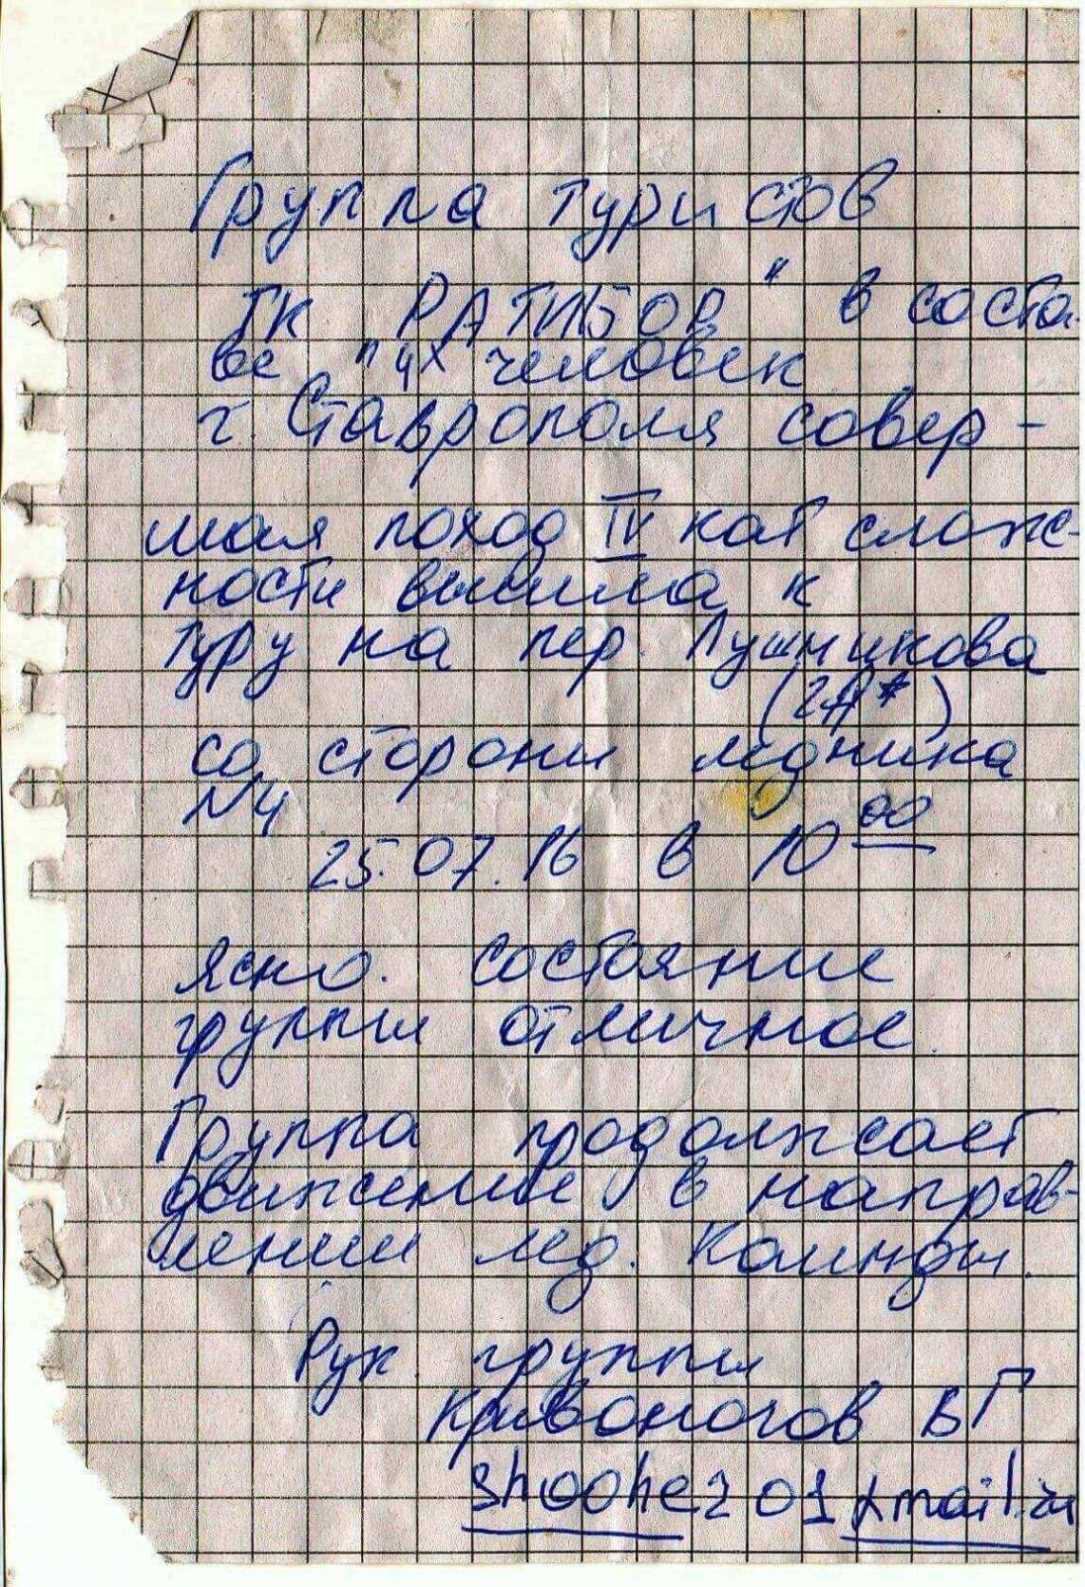 Группа туристов
ТК „РАТИБОР" в соста-
ве 4х человек
г. Ставрополя совер-
шая поход IV кат слож-
ности вышла к
туру на пер. Лушникова
(2А*)
со стороны ледника
N4
25.07.16 в 10 00
Ясно. Состояние
группы отличное.
Группа продолжает
движение в направ-
лении лед. Каинды.
Рук. группы
Кривоногов